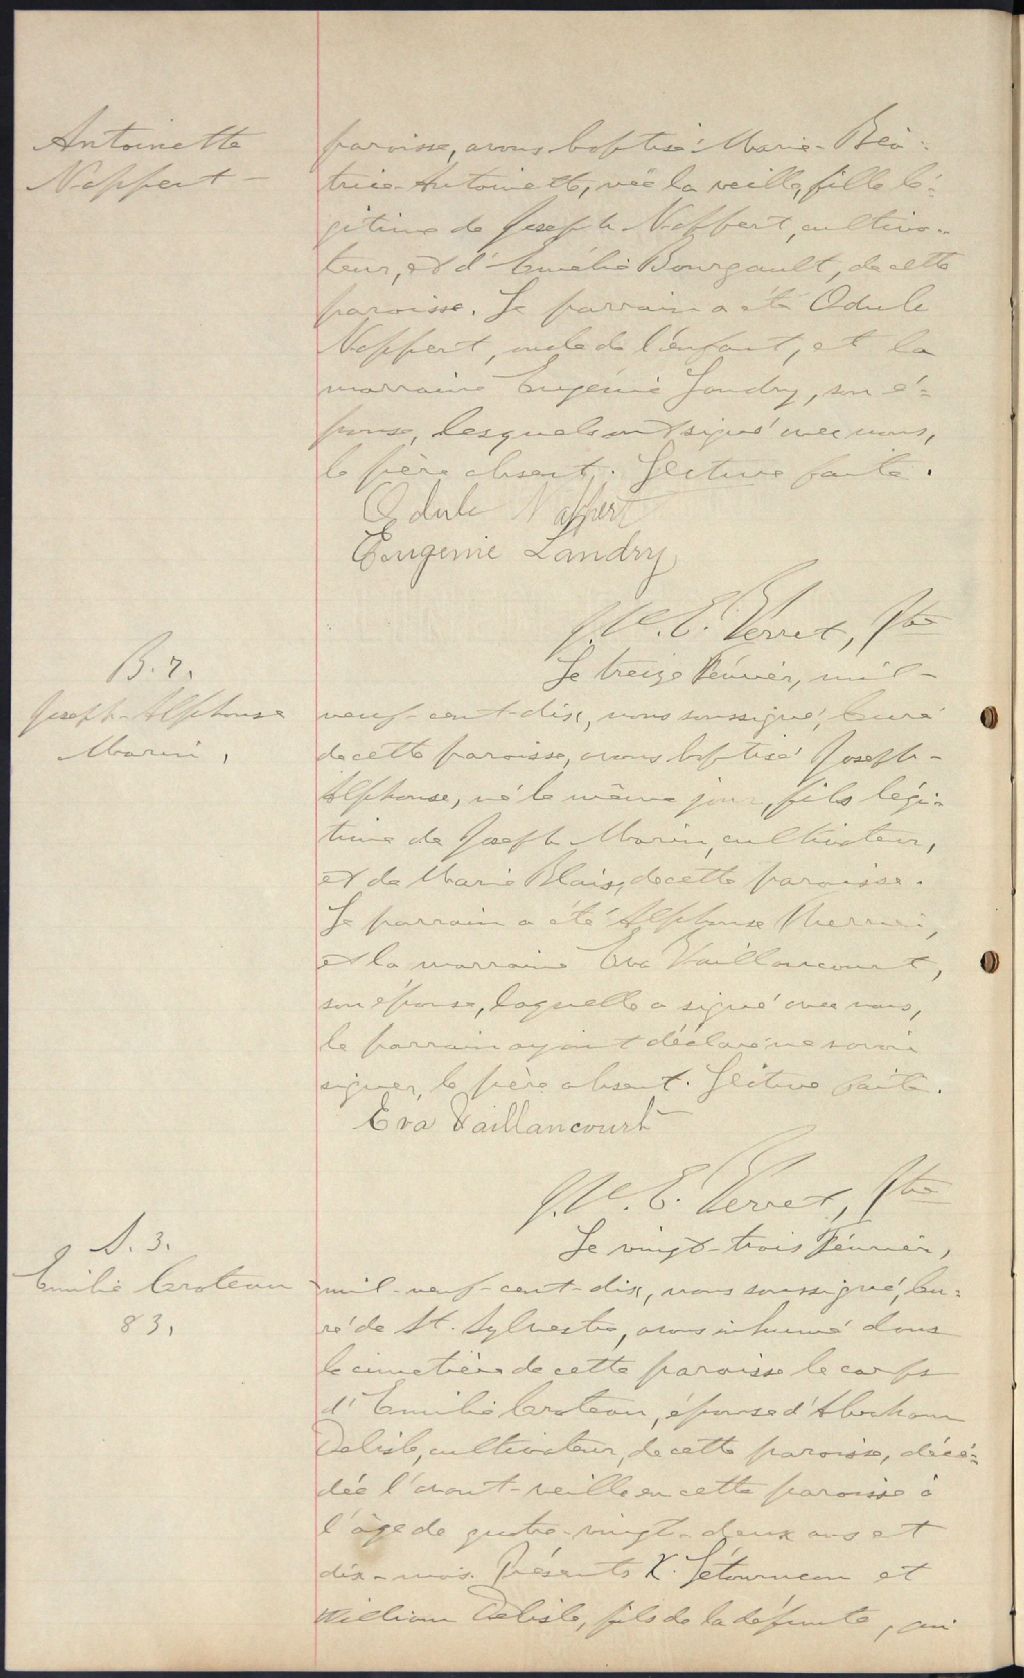 Antoinette
Nappert -
paroisse, avons baptisé Marie-Béa-
trice-Antoinette, née la veille, fille lé-
gitime de Joseph Nappert, cultiva-
teur, et d'Emélie Bourgault, de cette
paroisse. Le parrain a été Odule
Nappert, oncle de l'enfant, et la
marraine Eugénie Landry, son é-
pouse, lesquels ont signé avec nous,
le père absent. Lecture faite.
Odule Nappert
Eugenie Landry
E. Verret, Ptre
B. 7.
Joseph-Alphonse
Marin,
Le treize Février, mil-
neuf-cent-dix, nous soussigné, Curé
de cette paroisse, avons baptisé Joseph-
Alphonse, né le même jour, fils légi-
time de Joseph Marin, cultivateur,
et de Marie Blais, de cette paroisse.
Le parrain a été Alphonse
et la marraine Eva Vaillancourt,
son épouse, laquelle a signé avec nous,
le parrain ayant déclaré ne savoir
signer, le père absent. Lecture faite.
Eva Vaillancourt
E. Verret, Ptre
S. 3.
Emilie Croteau
83,
Le vingt-trois Février,
mil-neuf-cent-dix, nous soussigné, Cu-
ré de St. Sylvestre, avons inhumé dans
le cimetière de cette paroisse le corps
d'Emilie Croteau, épouse d'Abraham
Delisle, cultivateur, de cette paroisse, décé-
dée l'avant-veille en cette paroisse à
l'âge de quatre-vingt-deux ans et
dix-mois. Présents X. Létourneau et
William Delisle, fils de la défunte, qui